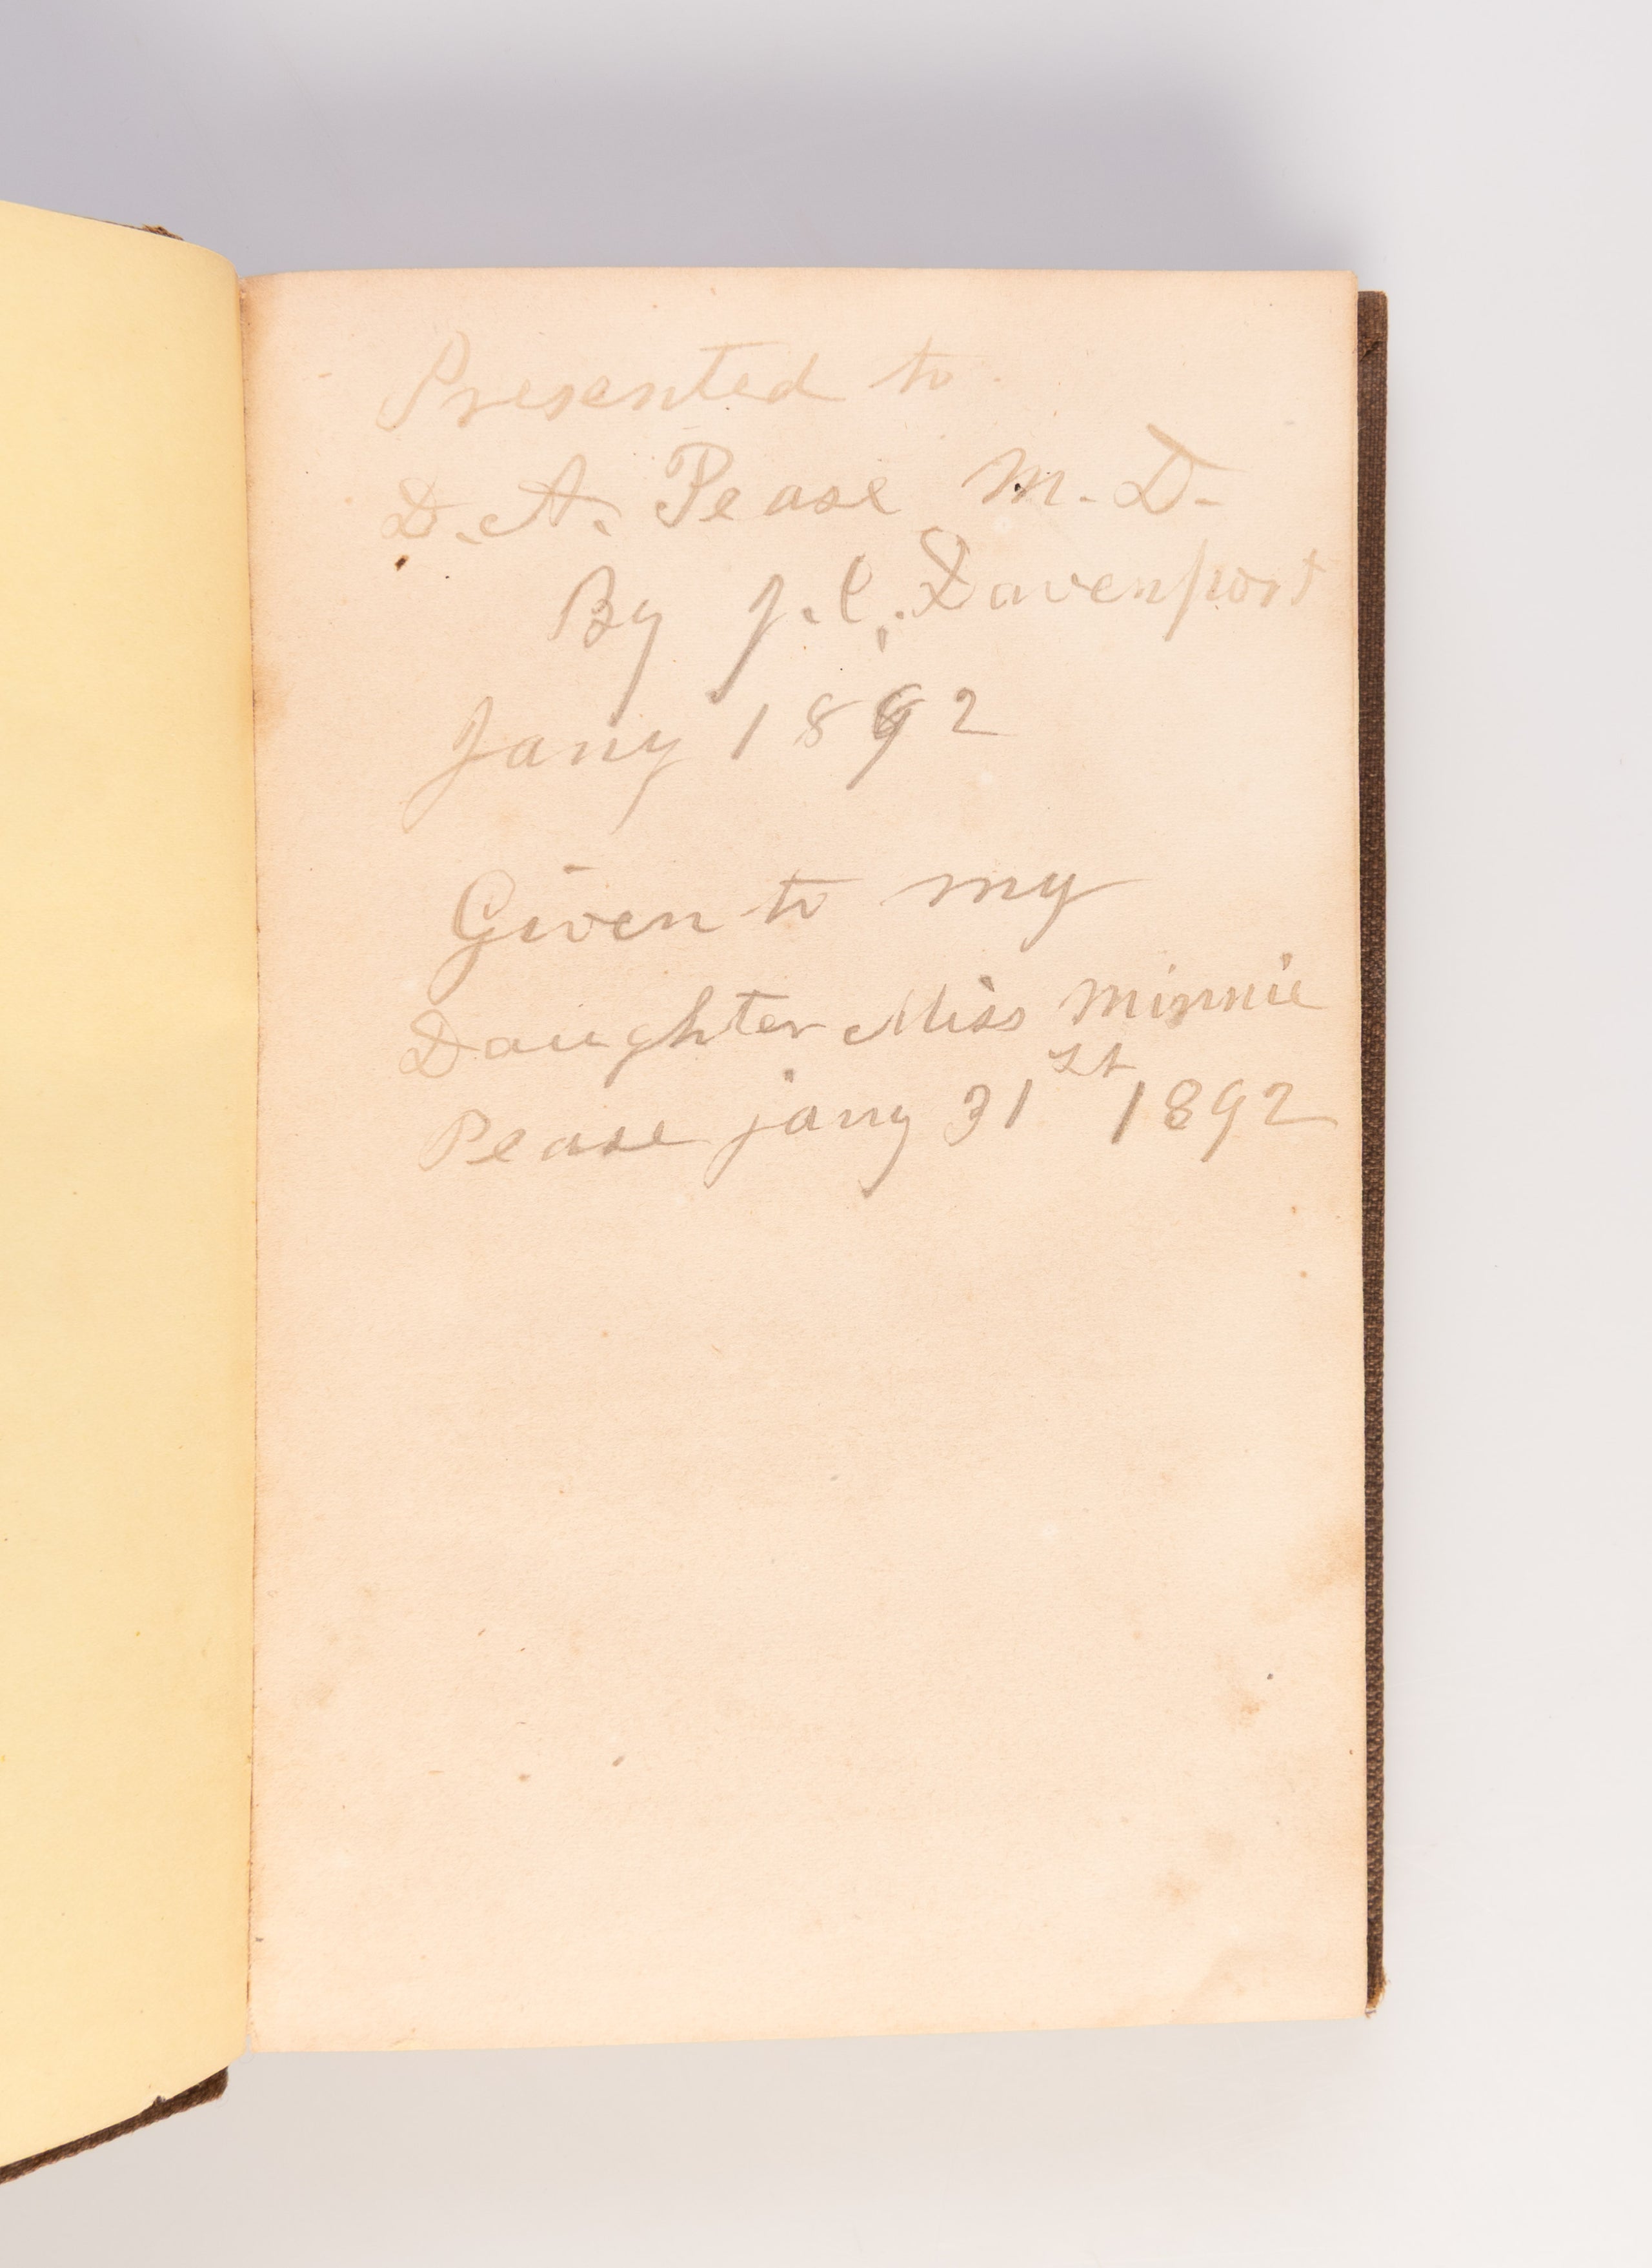 Presented to
D. A. Pease M. D.
By J. C. Davenport
Jany 1892
Given to my
Daughter Miss Minnie
Pease jany 31st 1892